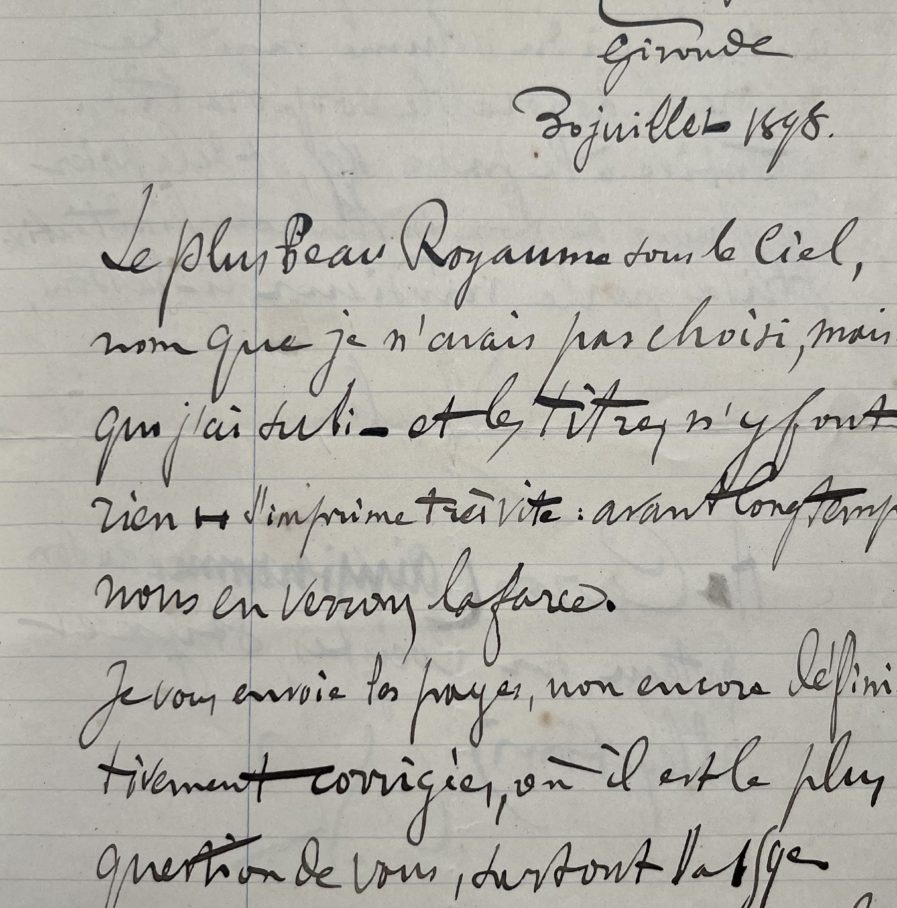 Gironde
30 juillet 1898.
Le plus Beau Royaume sous le Ciel,
nom que je n'avais pas choisi, mais
que j'ai subi — et les titres n'y font
rien — s'imprime très vite : avant longtemps
nous en verrons la farce.
Je vous envoie les pages, non encore défini
tivement corrigées, où il est le plus
question de vous, surtout la